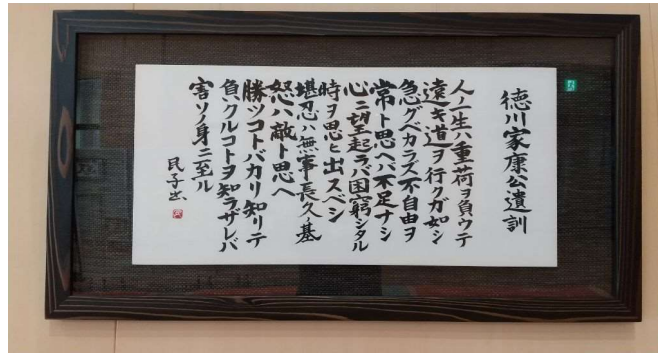 徳川家康公遺訓
人ノ一生ハ重荷ヲ負ウテ
遠キ道ヲ行クガ如シ
急グベカラズ不自由ヲ
常ト思ヘバ不足ナシ
心ニ望起ラバ困窮シタル
時ヲ思ヒ出スベシ
堪忍ハ無事長久基
怒ハ敵ト思ヘ
勝ツコトバカリ知リテ
負クルコトヲ知ラザレバ
害ソノ身ニ至ル
民子書